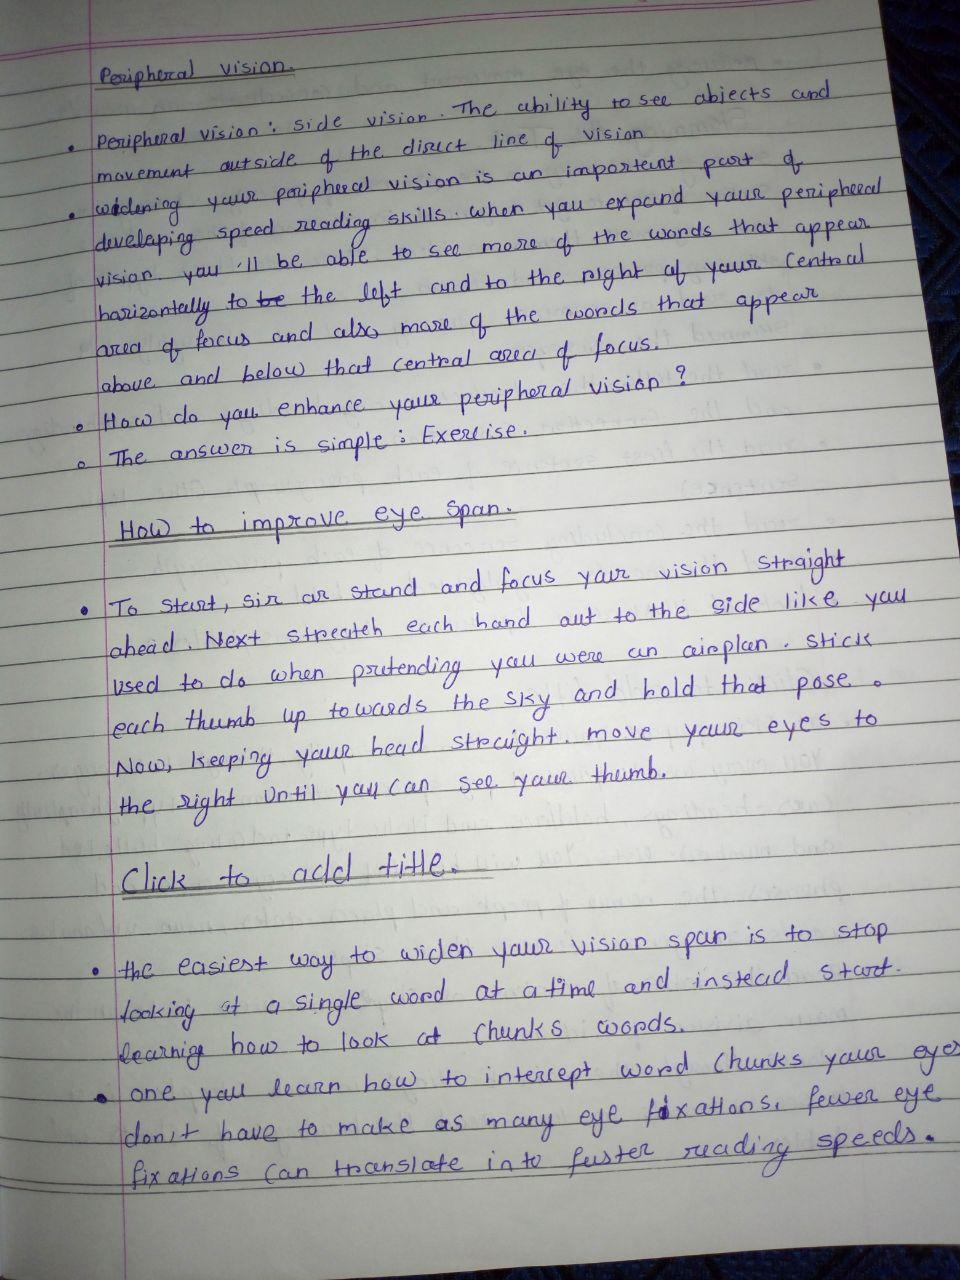 Peripheral vision.
• Peripheral vision : side vision. The ability to see objects and
movement outside of the direct line of vision
• widening your peripheral vision is an important part of
developing speed reading skills. when you expand your peripheral
vision. you 'll be able to see more of the words that appear
horizontally to be the left and to the right of your central
area of focus and also more of the words that appear
above and below that central area of focus.
• How do you enhance your peripheral vision ?
• The answer is simple : Exercise.
How to improve eye span.
• To start, sir or stand and focus your vision straight
ahead. Next streatch each hand out to the side like you
used to do when pretending you were an airplan. stick
each thumb up towards the sky and hold that pose.
Now, keeping your head straight. move your eyes to
the right until you can see your thumb.
Click to add title.
• the easiest way to widen your vision span is to stop
looking at a single word at a time and instead start.
learnig how to look at chunks words.
• one you learn how to intercept word chunks your eyes
don,t have to make as many eye fixations. fewer eye
fixations can translate into faster reading speeds.